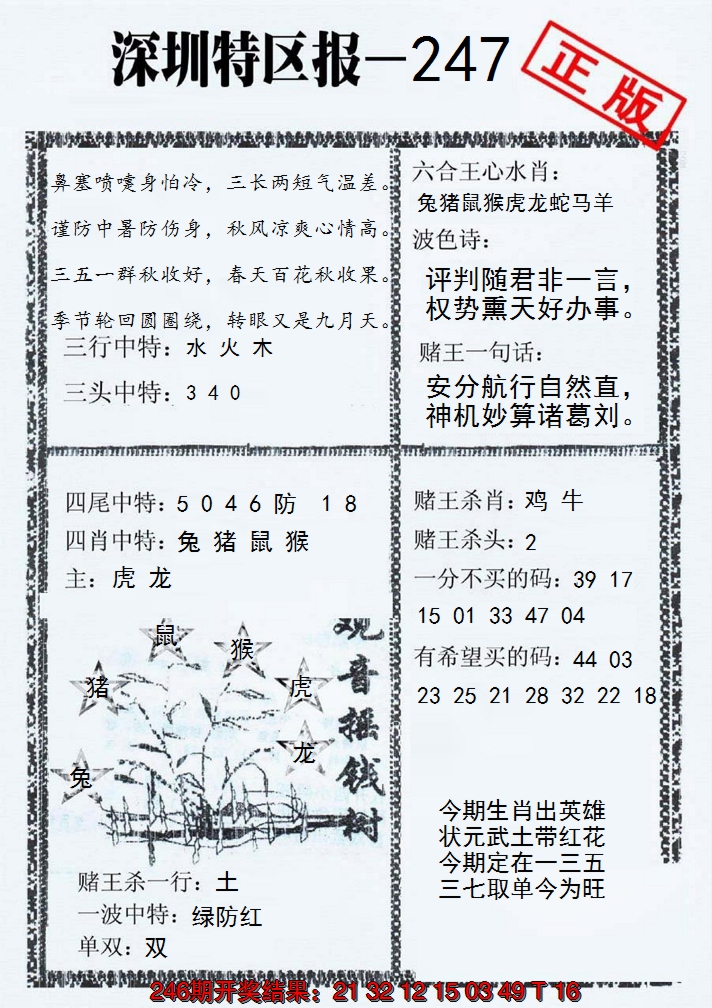 深圳特区报－247
正版
鼻塞喷嚏身怕冷，三长两短气温差。
谨防中暑防伤身，秋风凉爽心情高。
三五一群秋收好，春天百花秋收果。
季节轮回圆圈绕，转眼又是九月天。
三行中特：水 火 木
三头中特：3 4 0
六合王心水肖：
兔猪鼠猴虎龙蛇马羊
波色诗：
评判随君非一言，
权势熏天好办事。
赌王一句话：
安分航行自然直，
神机妙算诸葛刘。
四尾中特：5 0 4 6 防 1 8
四肖中特：兔 猪 鼠 猴
主：虎 龙
鼠
猴
猪
虎
龙
兔
观音摇钱树
赌王杀一行：土
一波中特：绿防红
单双：双
赌王杀肖：鸡 牛
赌王杀头：2
一分不买的码：39 17
15 01 33 47 04
有希望买的码：44 03
23 25 21 28 32 22 18
今期生肖出英雄
状元武土带红花
今期定在一三五
三七取单今为旺
246期开奖结果：21 32 12 15 03 49 T 16